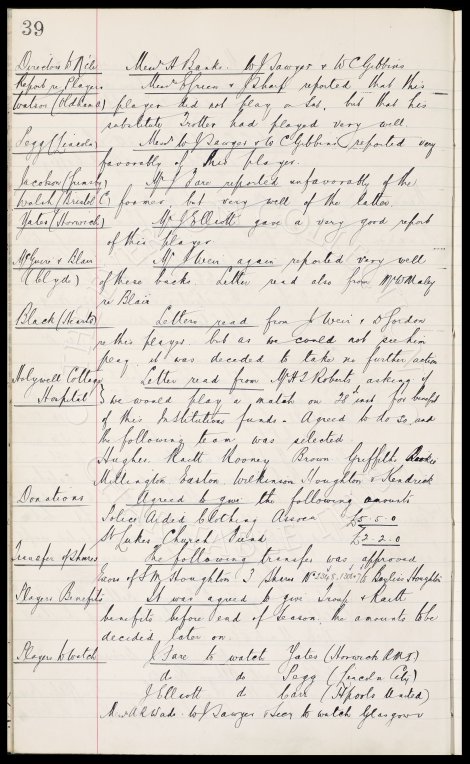 39
Directors to Relie Messrs H Banks. W J Sawyer & W C Gibbins
Report re Players Messrs E Green & J Sharp reported that this
Watson (Oldham A) player did not play on Sat, but that his
substitute Trotter had played very well.
Pegg (Lincoln) Messrs W J Sawyer & W C Gibbins reported very
favorably of this player.
Jacobson (Grimsby) Mr J Fare reported unfavorably of the
Walsh (Bristol C) former, but very well of the latter
Yates (Norwich) Mr J Elliott gave a very good report
of this player
McGuire & Blair Mr J Weir again reported very well
(Clyde) of these backs. Letter read also from Mr W Maley
re Blair
Black (Hearts) Letters read from J Weir & D Gordon
re this player. but as we could not see him
play it was decided to take no further action
Holywell Cottage Letter read from Mr H L Roberts asking if
Hospital } we would play a match on 28th inst for benefit
of this Institutions funds. Agreed to do so, and
the following team was selected
Hughes Raitt Rooney Brown Griffiths
Millington Easton Wilkinson Houghton & Kendrick
Donations Agreed to give the following amounts
Police Aided Clothing Assocn £5-5-0
St Lukes Church Fund £2-2-0
Transfer of Shares The following transfer was approved
Exors of S M Houghton 3 Shares No to Houghton
Players Benefits It was agreed to give Troup & Raitt
benefits before end of Season, the amounts to be
decided later on.
Players to Watch J Fare to watch Yates (Norwich
do do Pegg (Lincoln City)
J Elliott do Carr (Hpools United)
Messrs A R Wade. W J Sawyer & Secy to watch Glasgow v